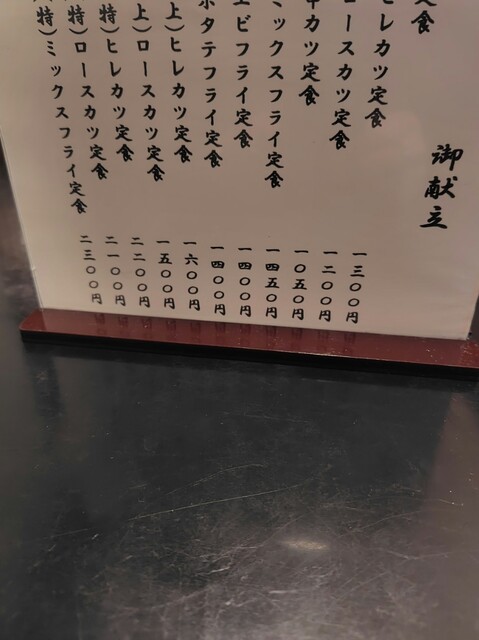 御献立
定食
ヒレカツ定食 一三〇〇円
ロースカツ定食 一二〇〇円
串カツ定食 一〇五〇円
ミックスフライ定食 一四五〇円
エビフライ定食 一四〇〇円
ホタテフライ定食 一四〇〇円
上)ヒレカツ定食 一六〇〇円
上)ロースカツ定食 一五〇〇円
特)ヒレカツ定食 二二〇〇円
特)ロースカツ定食 二一〇〇円
特)ミックスフライ定食 二三〇〇円